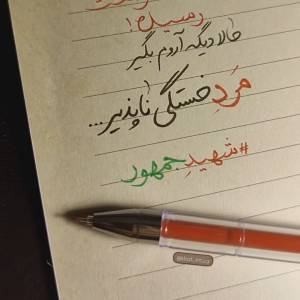 رسیده!
حالا دیگه آروم بگیر
مَردِ خستگی ناپذیر...
#شهیدِ جمهور